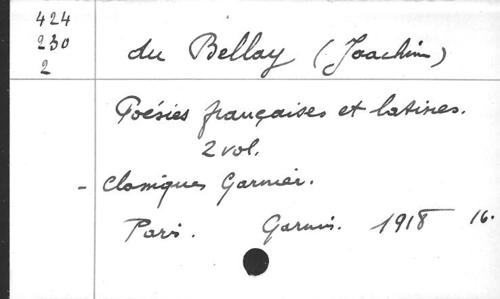 424
230
2
du Bellay (Joachim)
Poésies françaises et latines.
2 vol.
- Classiques Garnier.
Paris. Garnier. 1918 16.